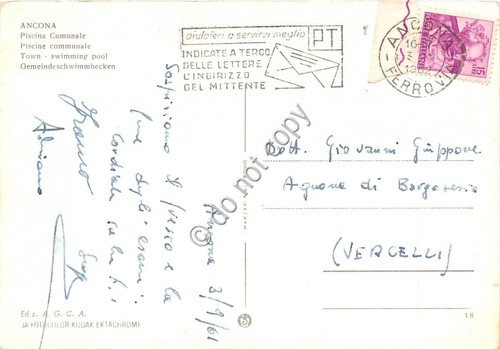 ANCONA
Piscina Comunale
Piscine communale
Town - swimming pool
Gemeindeschwimmbecken
aiutateci a servirvi meglio
PT
INDICATE A TERGO
DELLE LETTERE
L'INDIRIZZO
DEL MITTENTE
ANCONA
FERROVIA
ITALIANE
15
Ancona 3/9/61
Sospiriamo il fresco e la
fine degli esami
Cordiali saluti
Franco
Adriano
Dott. Giovanni Giuppone
Agnona di Borgosesia
(VERCELLI)
© do not copy
Ediz. A. G. C. A.
DA FOTOCOLOR KODAK EKTACHROME
3
18